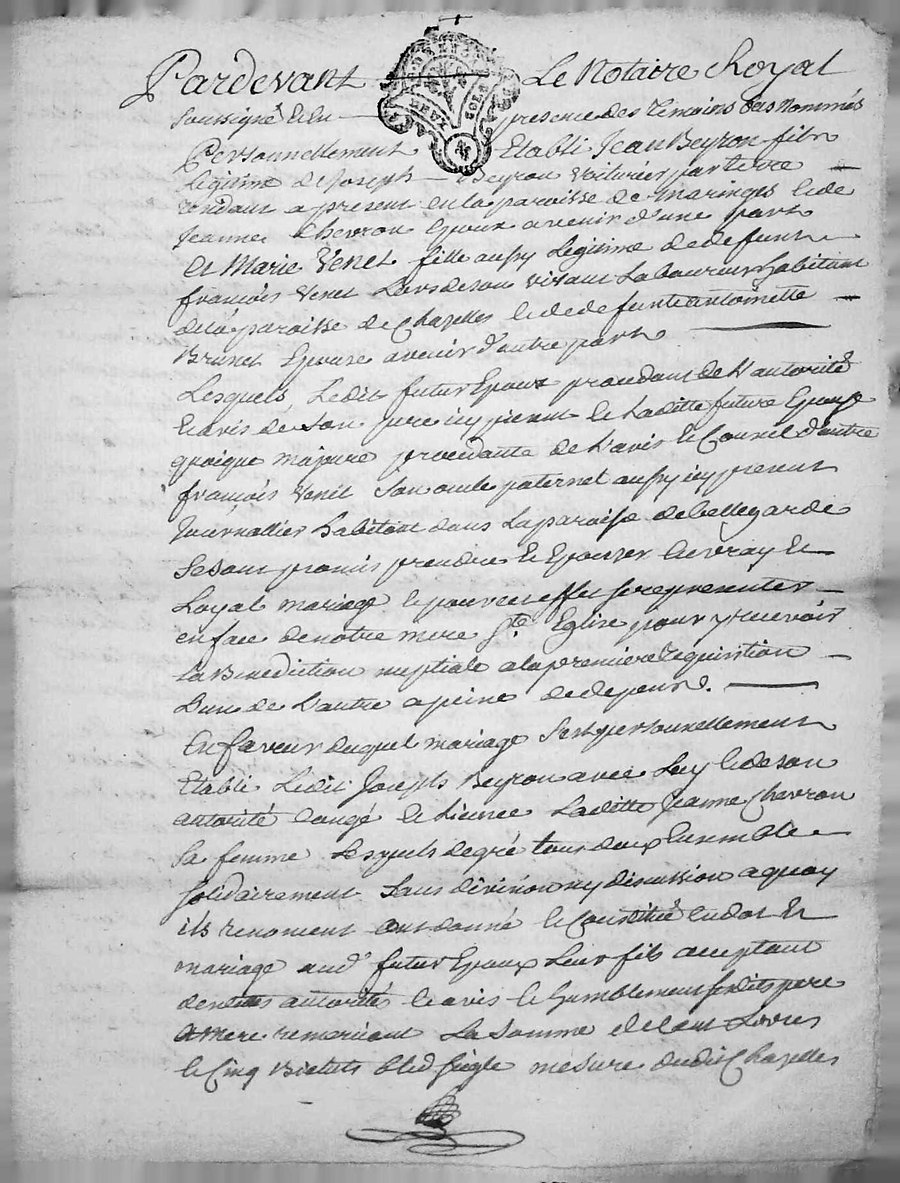 Pardevant Le Notaire Royal
soussigné et en presence des temoins bas nommés
Personnellement Etabli Jean Beyron fils
legitime de Joseph Beyron voiturier par terre
residant a present en la paroisse de Maringes et de
Jeanne Chevron Epoux avenir d'une part
et Marie Venet fille aussy legitime de defunt
françois Venet Lors de son vivant Laboureur habitant
de la paroisse de Chazelles et de defunte antoinette
Brunet Epouse avenir d'autre part
Lesquels Ledit futur Epoux procedant de L'autorité
et avis de son pere icy present et Laditte future Epouse
quoique majeure procedante de L'avis et Conseil d'autre
françois Venet son oncle paternel aussy icy present
Journallier habitant dans La paroisse de bellegarde
se sont promis prendre et Epouser en vray et
Loyal mariage et pour cet effet se representer
en face de notre mere Ste Eglise pour y recevoir
La Benediction nuptiale a la premiere requisition
L'un de L'autre a peine de depens.
En faveur duquel mariage s'est personnellement
Etabli Ledit Joseph Beyron avec Luy et de son
autorité Congé et Licence Laditte Jeanne Chevron
sa femme Lesquels de gré tous deux Ensemble
solidairement sans division ny discussion a quoy
ils renoncent ont donné et Constitué en dot et
mariage aud futur Epoux Leur fils acceptant
autorités et avis et humblement sesdits pere
et mere remerciant La somme de Cent Livres
et Cinq Bichets bled seigle mesure dudit Chazelles